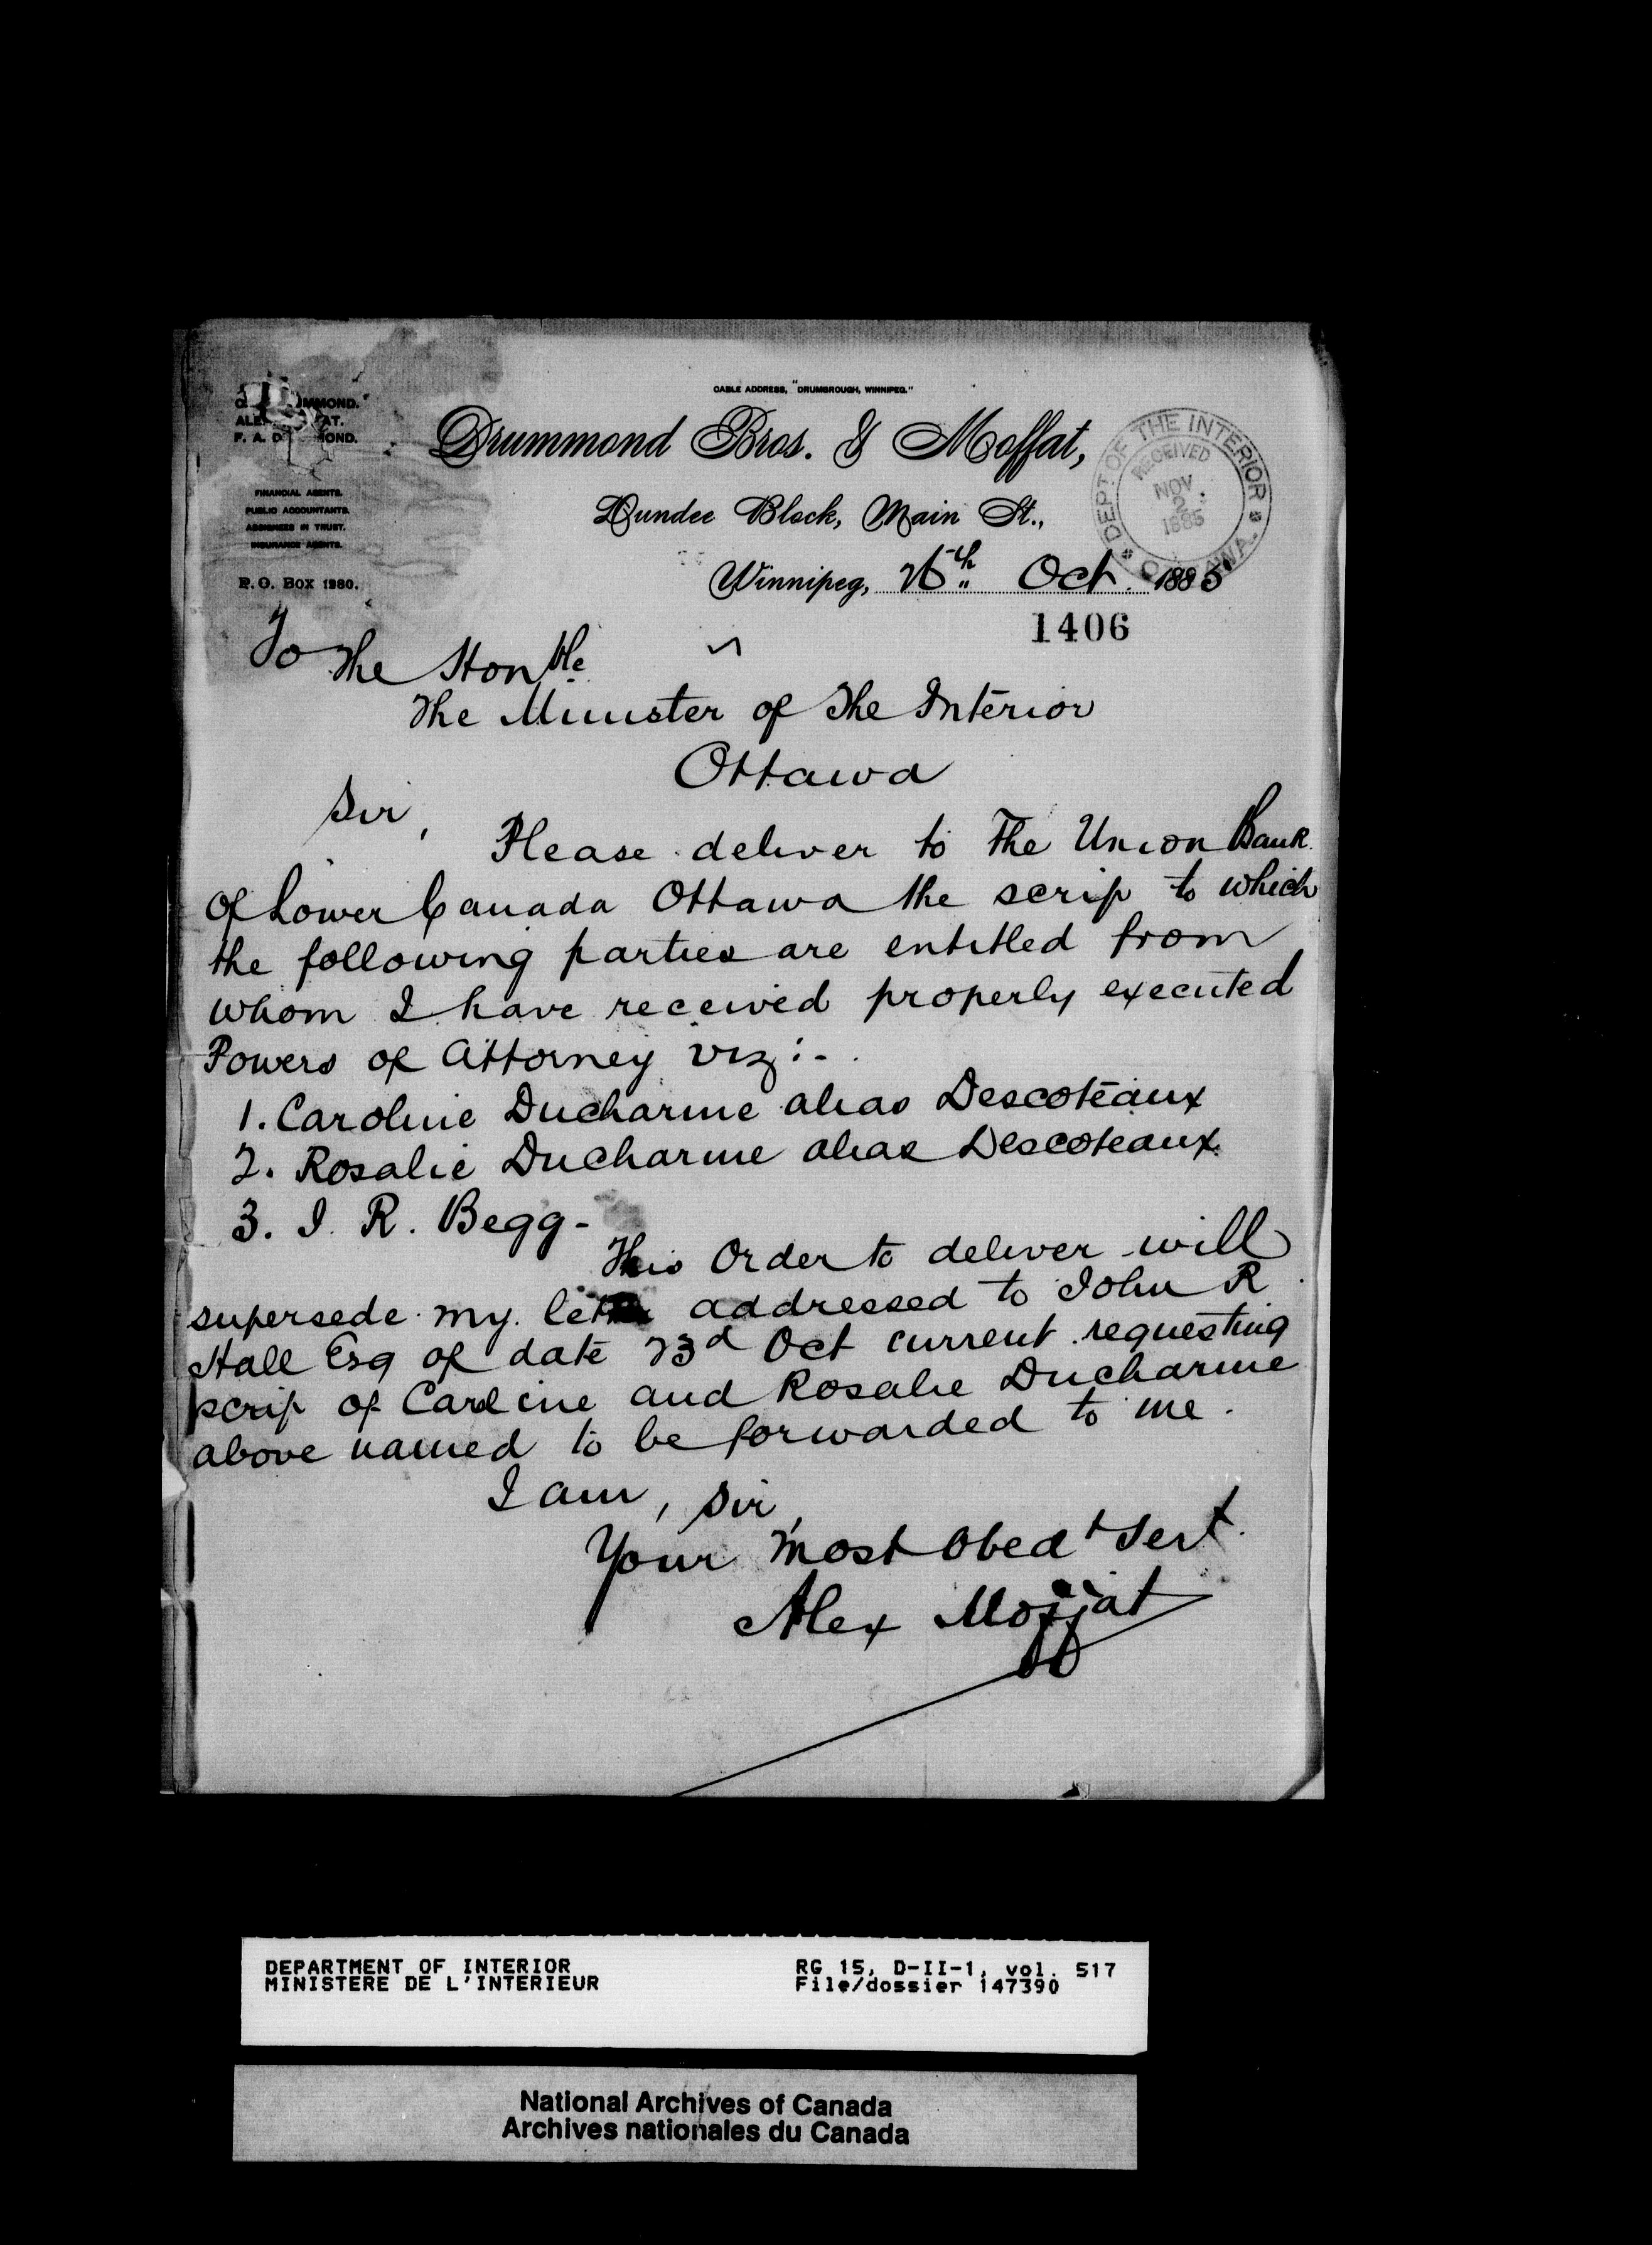 CABLE ADDRESS, "DRUMBROUGH, WINNIPEG."
MMOND.
ALE AT.
F. A. D MOND.
Drummond Bros. & Moffat,
FINANCIAL AGENTS.
PUBLIC ACCOUNTANTS.
ASSIGNEES IN TRUST.
INSURANCE AGENTS.
Dundee Block, Main St.,
DEPT OF THE INTERIOR
RECEIVED
NOV
2
1885
OTTAWA.
P. O. BOX 1280.
Winnipeg, 26th Oct. 1885
1406
To The Honble
The Minister of The Interior
Ottawa
Sir,
Please deliver to The Union Bank
of Lower Canada Ottawa the scrip to which
the following parties are entitled from
whom I have received properly executed
Powers of Attorney viz:-
1. Caroline Ducharme alias Descoteaux
2. Rosalie Ducharme alias Descoteaux
3. I. R. Begg-
This Order to deliver will
supersede my letter addressed to John R
Hall Esq of date 23d Oct current requesting
scrip of Caroline and Rosalie Ducharme
above named to be forwarded to me.
I am, Sir,
Your most Obedt Sert.
Alex Moffat
DEPARTMENT OF INTERIOR
MINISTERE DE L'INTERIEUR
RG 15, D-II-1, vol. 517
File/dossier 147390
National Archives of Canada
Archives nationales du Canada